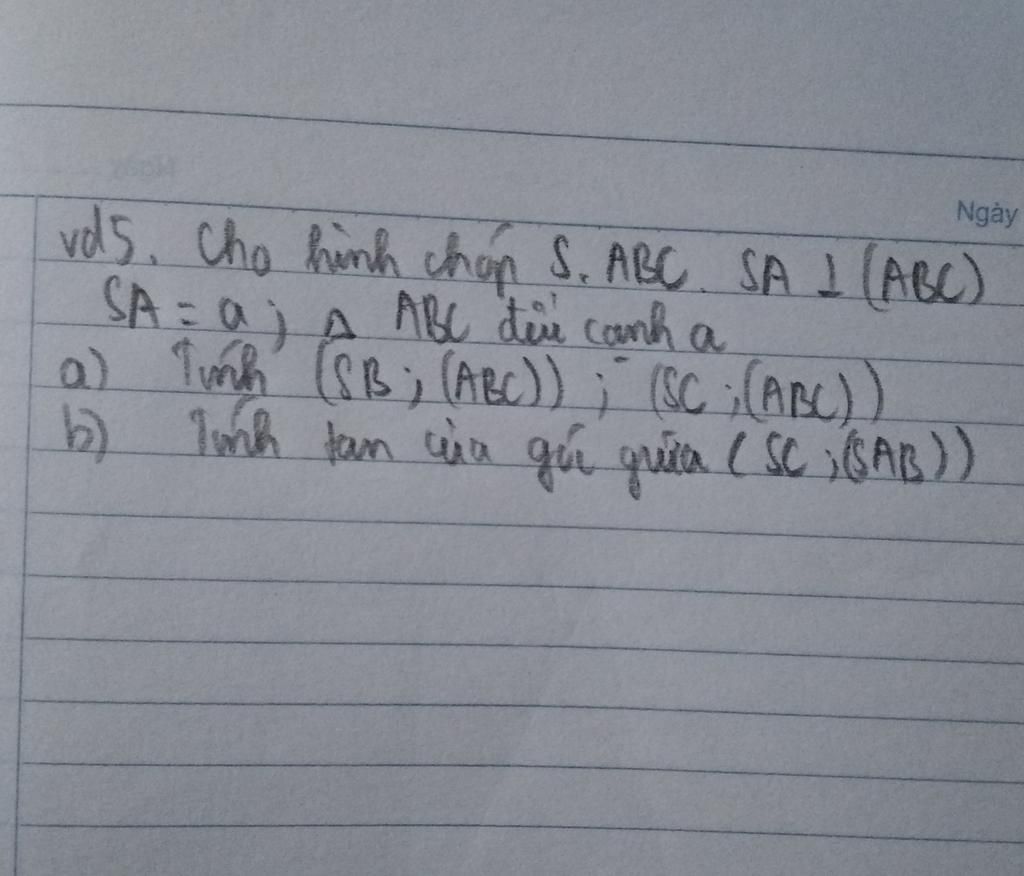 Ngày
vd5. Cho hình chóp S.ABC. SA ⊥ (ABC)
SA = a; Δ ABC đều cạnh a
a) Tính (SB; (ABC)); (SC; (ABC))
b) Tính tan của góc giữa (SC; (SAB))